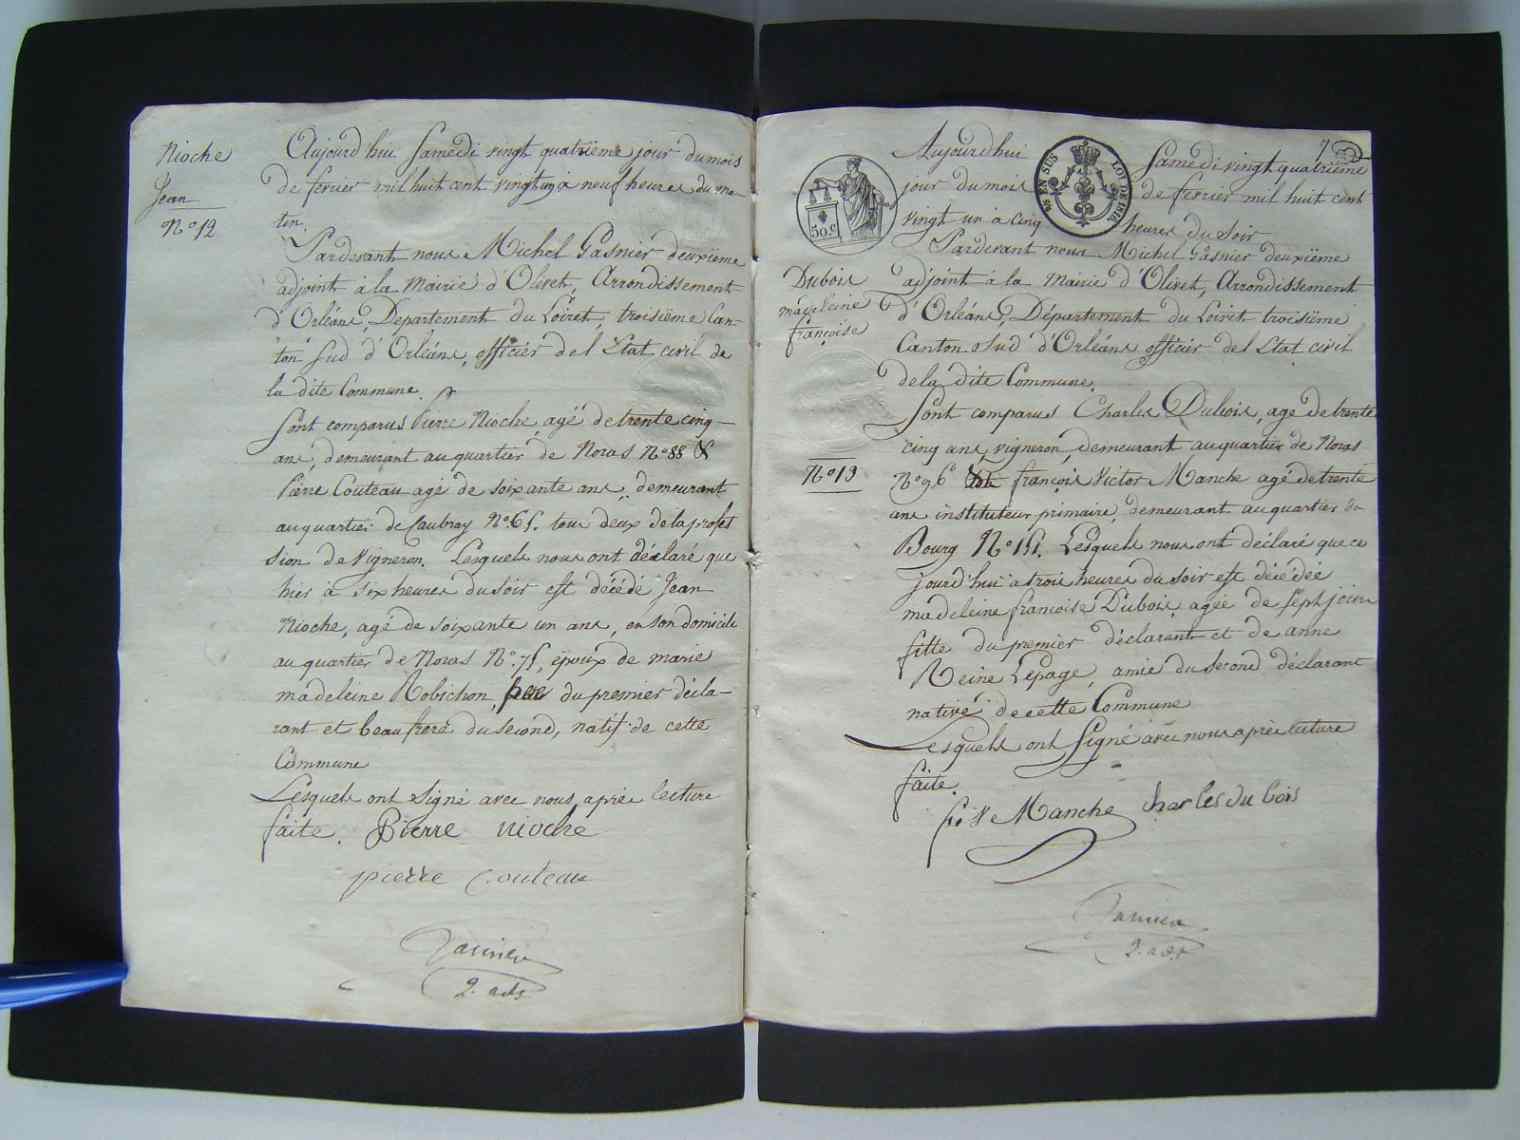 Nioche
Jean
N.° 12
Aujourd'hui Samedi vingt quatrième jour du mois
de fevrier mil huit cent vingt un à neuf heures du ma-
tin.
Pardevant nous Michel Gasnier deuxième
adjoint à la Mairie d'Olivet, Arrondissement
d'Orléans, Departement du Loiret, troisième Can-
ton Sud d'Orléans, officier del Etat civil de
la dite Commune.
Sont comparus Pierre Nioche, agé de trente cinq
ans, demeurant au quartier de Noras N.° 88 &
Pierre Couteau agé de soixante ans, demeurant
au quartier de Caubray N.° 65. tous deux de la profes
sion de vigneron. Lesquels nous ont déclaré que
hier à six heures du soir est décédé Jean
Nioche, agé de soixante un ans, en son domicile
au quartier de Noras N.° 75, époux de marie
madeleine Robichon, père du premier décla-
rant et beaufrere du second, natif de cette
Commune
Lesquels ont signé avec nous après lecture
faite. Pierre nioche
pierre Couteau
2. adj
7
50 c
EN SUS
LOI DE 1816
Dubois
madeleine
françoise
N.° 13
Aujourdhui Samedi vingt quatrième
jour du mois de fevrier mil huit cent
vingt un à cinq heures du soir
Pardevant nous Michel Gasnier deuxième
adjoint à la Mairie d'Olivet, Arrondissement
d'Orléans, Département du Loiret troisième
Canton Sud d'Orléans officier del Etat civil
dela dite Commune.
Sont comparus Charles Dubois, agé de trente
cinq ans, vigneron, demeurant au quartier de Noras
N.° 96 françois Victor Manche agé de trente
ans instituteur primaire, demeurant au quartier du
Bourg N.° 151. Lesquels nous ont déclaré que ce
jourd'hui à trois heures du soir est décédée
madeleine françoise Dubois, agée de sept jours
fille du premier déclarant et de anne
Reine Lepage, amie du second déclarant
native de cette Commune
Lesquels ont Signé avec nous après lecture
faite.
Manche Charles du bois
2. adj